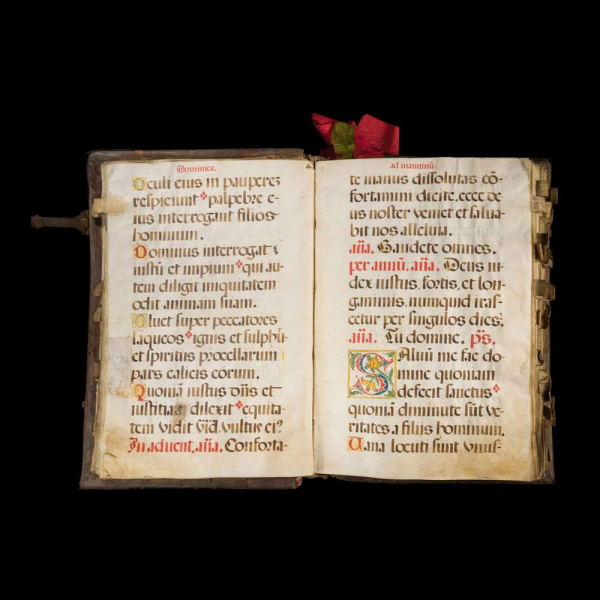 Dominica.
Oculi eius in pauperez
respiciunt palpebre e-
ius interrogant filios
hominum.
Dominus interrogat
iustū et impium qui au-
tem diligit iniquitatem
odit animam suam.
Pluet super peccatores
laqueos ignis et sulphū
et spiritus procellarum
pars calicis eorum.
Quoniā iustus dn̄s et
iustitias dilexit equita-
tem vidit vultus ei⁹
In aduent. an̄a. Conforta-
ad matutinū.
te manus dissolutas cō-
fortamini dicite. ecce de
us noster veniet et salua-
bit nos alleluia.
an̄a. Gaudete omnes.
per annū. an̄a. Deus iu-
dex iustus, fortis, et lon-
ganimis, numquid iras-
cetur per singulos dies.
an̄a. Tu domine. ps̄.
Saluū me fac do-
mine quoniam
defecit sanctus
quoniā diminute sūt ve-
ritates, a filiis hominum.
Uana locuti sunt vnus-